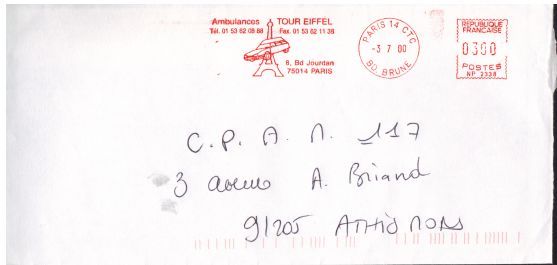 Ambulances TOUR EIFFEL
Tél. 01 53 62 08 88 Fax. 01 53 62 11 38
6, Bd Jourdan
75014 PARIS
PARIS 14 CTC
-3 7 00
BD. BRUNE
REPUBLIQUE
FRANCAISE
0300
POSTES
NP 2338
C.P.A.M. 117
3 avenue A. Briand
91205 ATHIS MONS